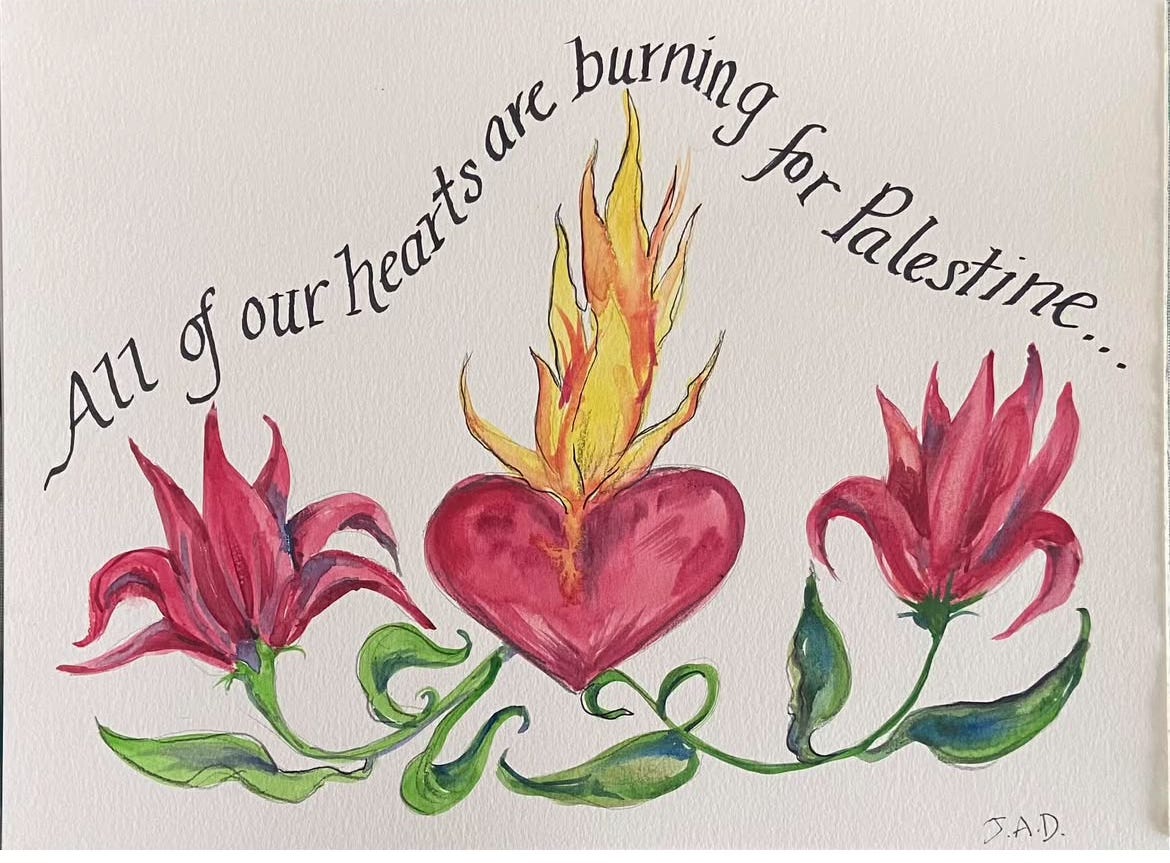 All of our hearts are burning for Palestine...
J.A.D.